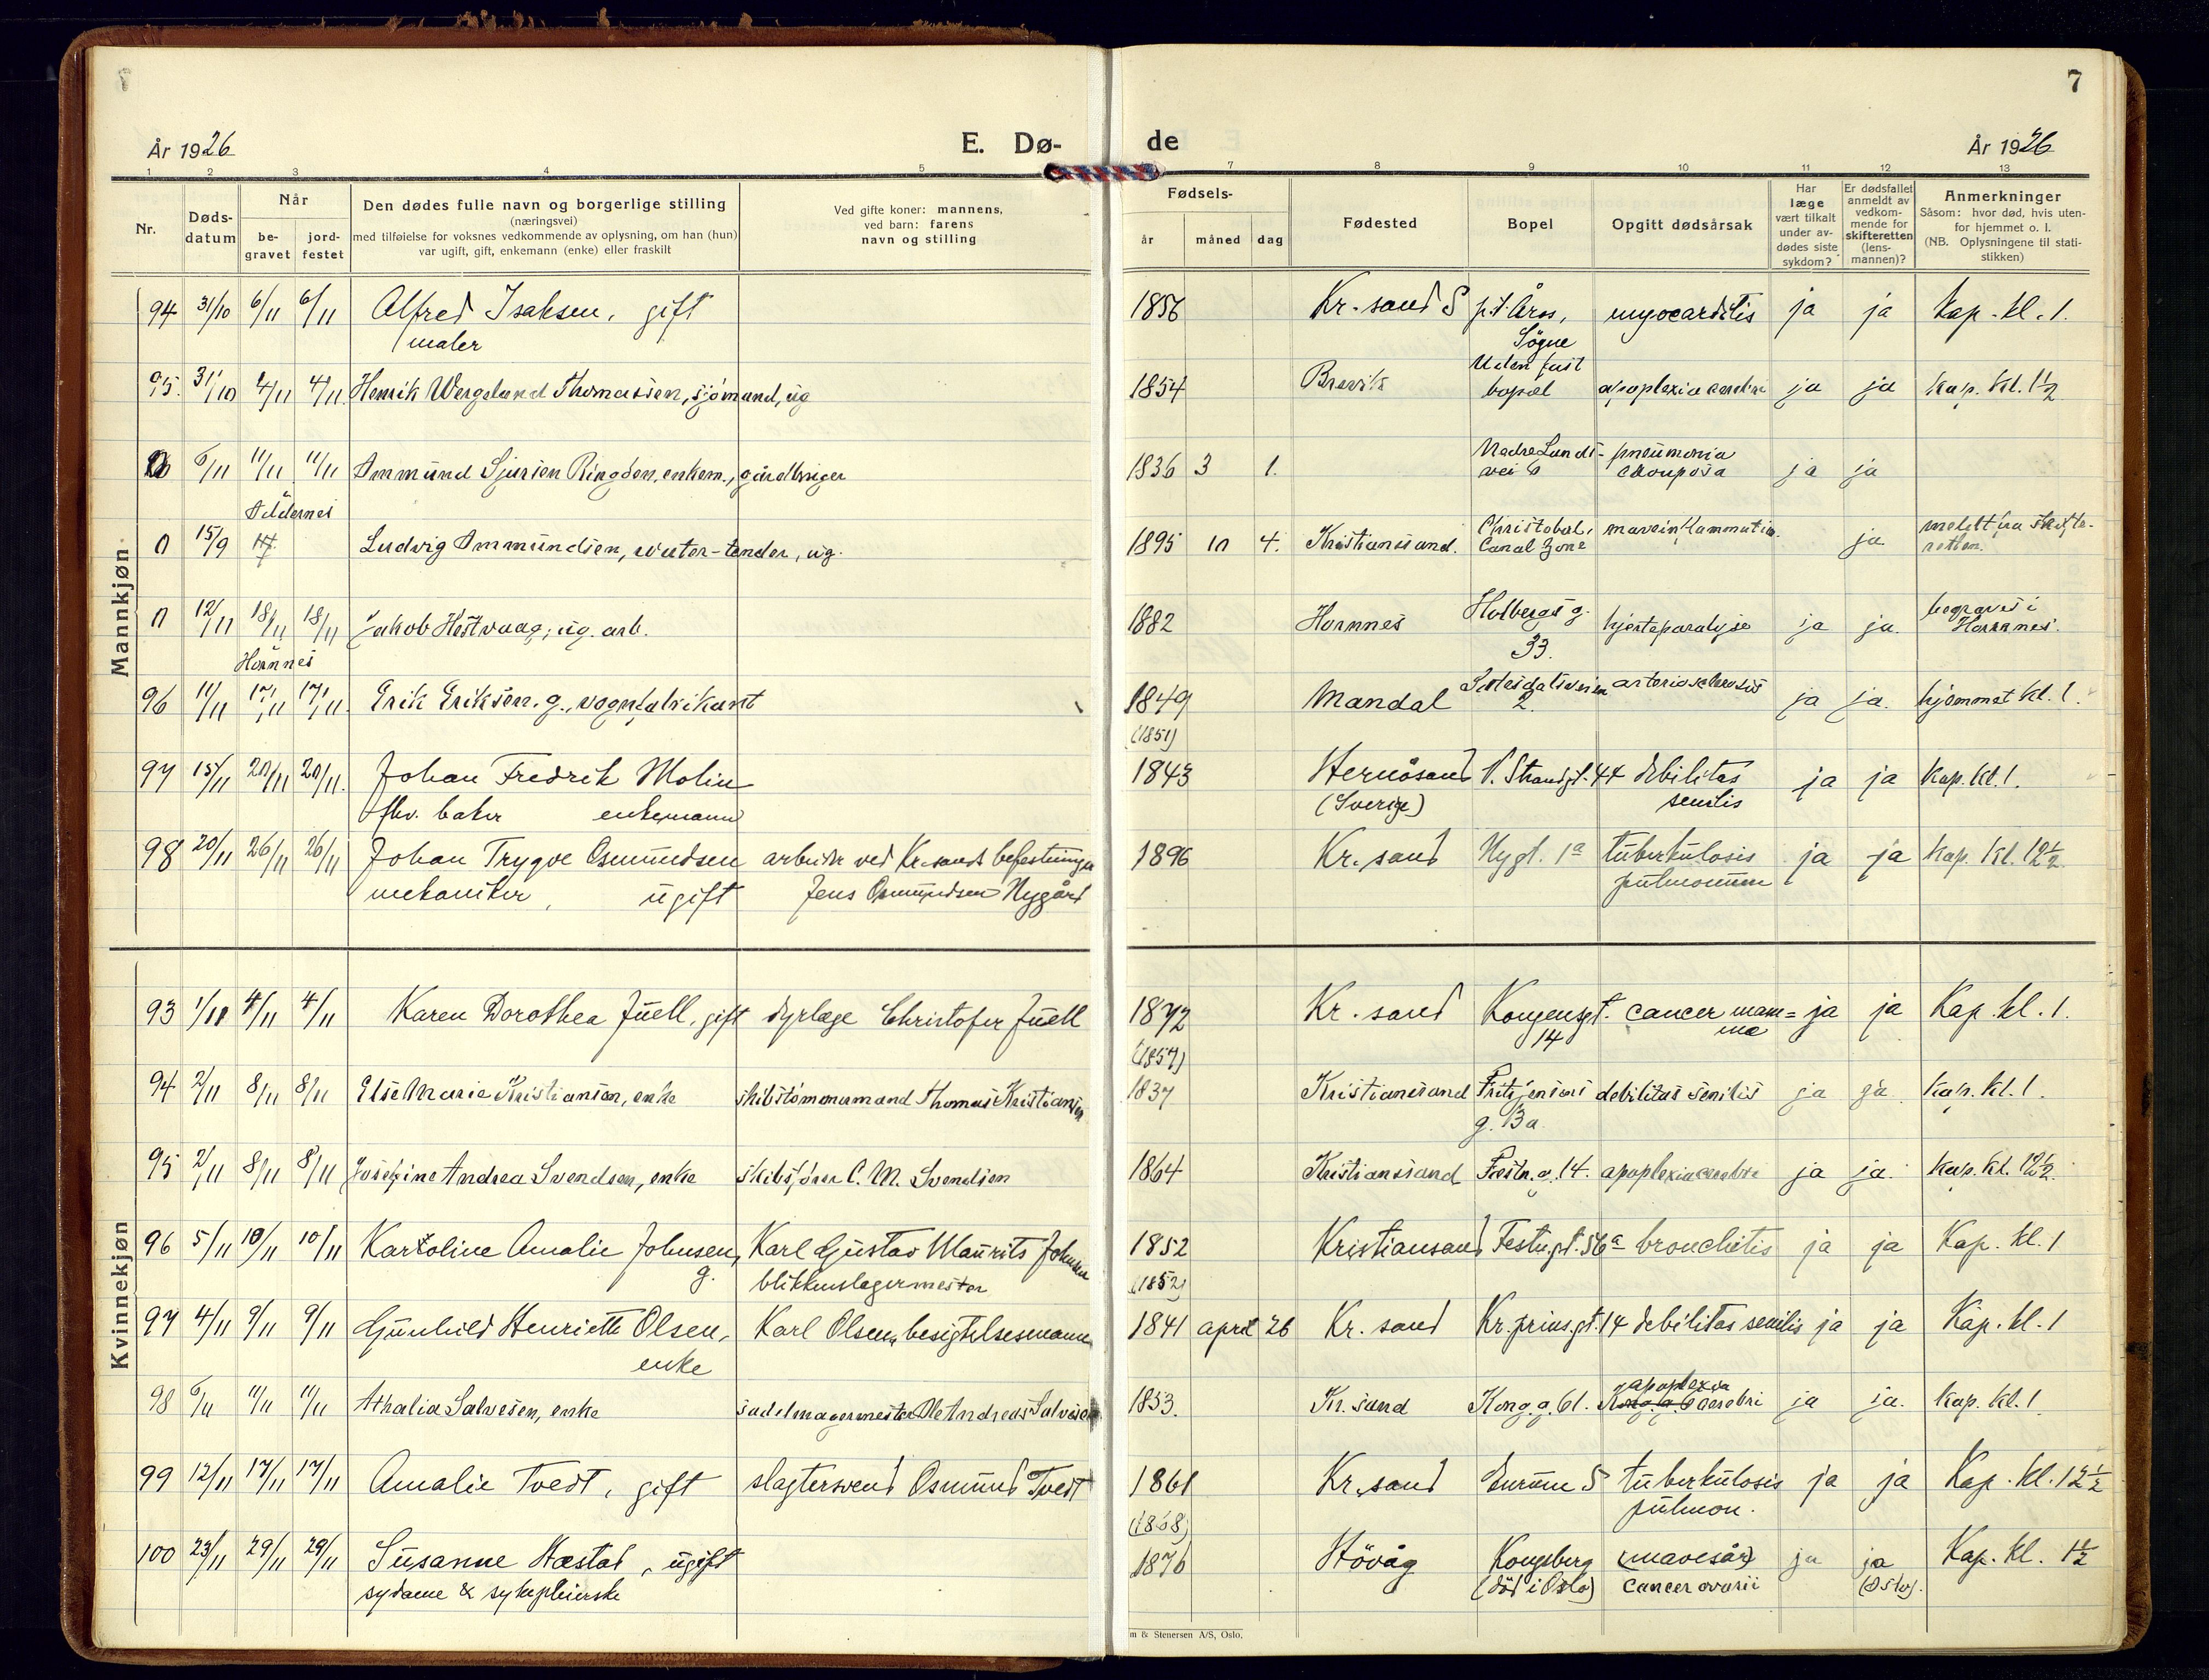 7
År 1926
E. Dø-
de
År 1926
1 2 3 4 5 7 8 9 10 11 12 13
Nr.
Døds-
datum
Når
be-
gravet
jord-
festet
Den dødes fulle navn og borgerlige stilling
(næringsvei)
med tilføielse for voksnes vedkommende av oplysning, om han (hun)
var ugift, gift, enkemann (enke) eller fraskilt
Ved gifte koner: mannens,
ved barn: farens
navn og stilling
Fødsels-
år måned dag
Fødested
Bopel
Opgitt dødsårsak
Har
læge
vært tilkalt
under av-
dødes siste
sykdom?
Er dødsfallet
anmeldt av
vedkom-
mende for
skifteretten
(lens-
mannen)?
Anmerkninger
Såsom: hvor død, hvis uten-
for hjemmet o. l.
(NB. Oplysningene til stati-
stikken)
Mannkjøn
94 31/10 6/11 6/11 Alfred Isaksen, gift 1856 Kr.sand S p.t. Åros, myocarditis ja ja Kap. kl. 1.
maler Søgne
95. 31/10 4/11 4/11 Henrik Wergeland Thomassen, sjømand, ug 1854 Brevik Uden fast bopæl apoplexia cerebri ja ja Kap. kl. 1½
0 6/11 11/11 11/11 Ammund Sjursen Ringåen, enkem., gårdbruger 1836 3 1. Nedre Lunds- pneumonia ja ja
Oddernes vei 6 crouposa
0 15/9 Ludvig Ammundsen, water-tender, ug. 1895 10 4. Kristianssand. Christobal, maveinflammation. ja meldt fra skifte-
Canal Zone retten.
0 12/11 18/11 18/11 Jakob Hestvaag, ug. arb. 1882 Hornnes Holbergs g. hjerteparalyse ja ja. begraves i
Hornnes 33. Hornnes.
96 11/11 17/11 17/11. Erik Eriksen, g., vognfabrikant 1849 Mandal Setesdalsveien arteriosclerosis ja ja. hjemmet kl. 1.
(1851) 2.
97 15/11 20/11 20/11. Johan Fredrik Molin 1843 Hernøsand V. Strandgt. 44 debilitas ja ja Kap. kl. 1.
fhv. baker enkemann (Sverige) senilis
98 20/11 26/11 26/11 Johan Trygve Osmundsen arbeider ved Kr.sands befestninger 1896 Kr. sand Nygt. 1a tuberkulosis ja ja Kap. kl. 12½
mekaniker, ugift Jens Osmundsen Nygård pulmonum
Kvinnekjøn
93 1/11 4/11 4/11 Karen Dorothea Juell, gift dyrlæge Christofer Juell 1872 Kr. sand Kongensgt. cancer mam= ja ja Kap. kl. 1.
(1857) 14 mæ
94 2/11 8/11 8/11 Else Marie Kristiansen, enke skibstømmermand Thomas Kristiansen 1837 Kristianssand Fritsjensens debilitas senilis ja ja. Kap. kl. 1.
g. 3a
95 2/11 8/11 8/11 Josefine Andrea Svendsen, enke skibsfører C. M. Svendsen 1864 Kristianssand Festn. g. 14. apoplexia cerebri ja ja. Kap. kl. 12½.
96 5/11 10/11 10/11 Karoline Amalie Johnsen, Karl Gustav Maurits Johnsen 1852 Kristiansand Festn.gt. 56a bronchitis ja ja Kap. kl. 1
g. blikkenslagermester (1852)
97 4/11 9/11 9/11 Gunhild Henriette Olsen, Karl Olsen, besigtelsesmann 1841 april 26 Kr. sand Kr. prins.gt. 14 debilitas senilis ja ja Kap. kl. 1
enke
98 6/11 11/11 11/11 Athalia Salvesen, enke sadelmagermester Ole Andreas Salvesen 1853. Kr. sand Kong. g. 61. apoplexia cerebri ja ja. Kap. kl. 1
99 12/11 17/11 17/11 Amalie Tvedt, gift slagtersvend Osmund Tvedt 1861 Kr. sand Enrum 5 tuberkulosis ja ja Kap. kl. 12½
(1868) pulmon.
100 23/11 29/11 29/11 Susanne Hæstad, ugift 1876 Høvåg Kongsberg (mavesår) ja ja Kap. kl. 1½
sydame & sykepleierske (død i Oslo) cancer ovarii (Oslo).
m & Stenersen A/S, Oslo.